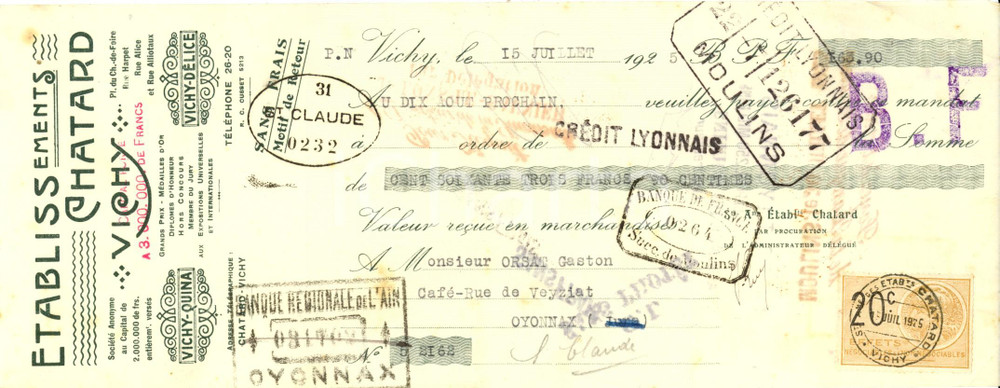 ETABLISSEMENTS
CHATARD
VICHY
Pl. du Ch.-de-Foire
Rue Harpet
Rue Alice
et Rue Alliotaux
A 3.000.000 DE FRANCS
GRANDS PRIX - MÉDAILLES D'OR
DIPLOMES D'HONNEUR
HORS CONCOURS
MEMBRE DU JURY
AUX EXPOSITIONS UNIVERSELLES
ET INTERNATIONALES
Société Anonyme
au Capital de
2.000.000 de frs.
entièremt versés
VICHY-DÉLICE
VICHY-QUINA
TÉLÉPHONE 26-20
R. C. CUSSET 5213
ADRESSE TÉLÉGRAPHIQUE :
CHATARD-VICHY
SANS FRAIS
Motif de Retour
31
CLAUDE
0232
P.N Vichy, le 15 JUILLET 1925 B.P.F. 163.90
AU DIX AOUT PROCHAIN, veuillez payer contre ce mandat
à ordre de CRÉDIT LYONNAIS Somme
de CENT SOIXANTE TROIS FRANCS 90 CENTIMES
Valeur reçue en marchandises
Ane Étabts Chatard
PAR PROCURATION
DE L'ADMINISTRATEUR DÉLÉGUÉ
A Monsieur ORSAT Gaston
Café-Rue de Veyziat
OYONNAX
No 5 2162
St Claude
CRÉDIT LYONNAIS
26177
MOULINS
B.F
BANQUE DE FRANCE
0264
Succ. de Moulins
BANQUE RÉGIONALE DE L'AIN
OYONNAX
20c
CHATARD
JUIL 1925
VICHY